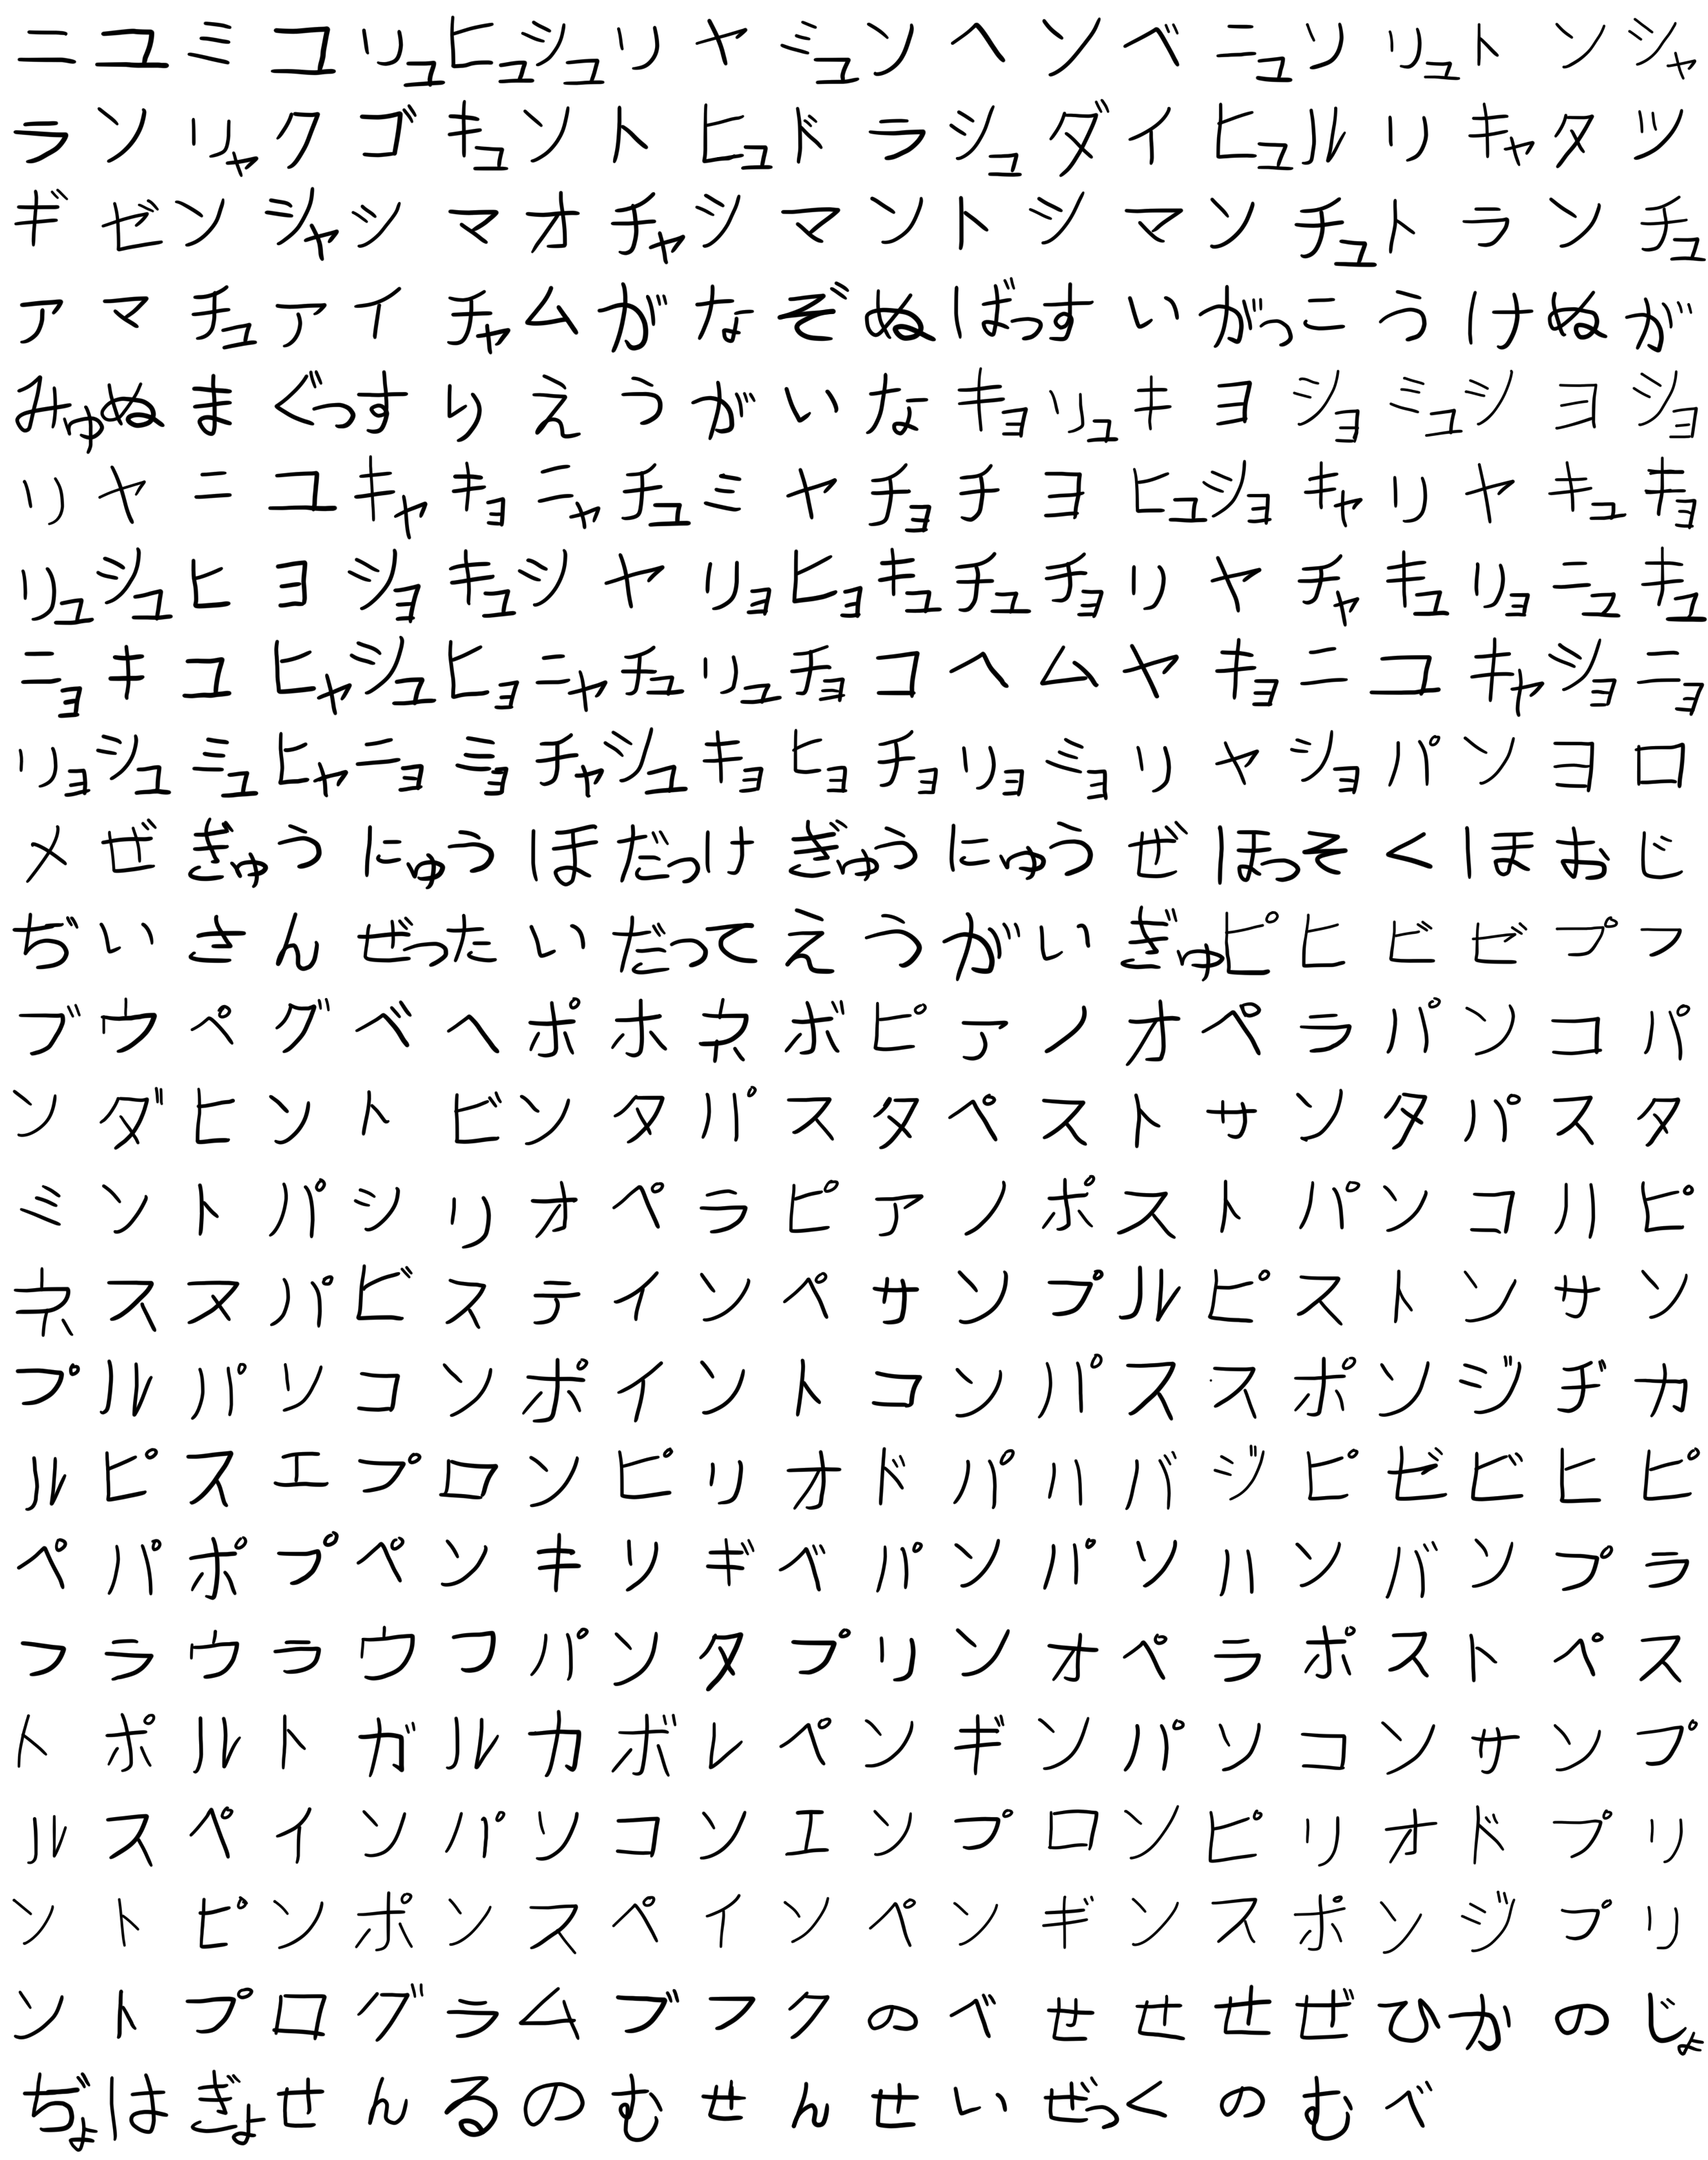 ニユミコリュヒュシュリヤミュンヘンベニュソリュトンシャ
ランリャクゴキュントヒュドラシュダイヒュルリキャタツ
ギゼンシャシマオチャシマントシマンチュトランチュ
アマチュアイチャムがなぞぬばっすいがっこうけぬが
みゅぬまぐっすりえうがいなキョリュキヨショミュシヨショ
リヤニユキャキョニャチュミヤチョチヨヒュショキャリヤキュキョ
リュシュヒヨショキュシヤリョヒョキュチュチョリヤチャキュリョニュキュ
ニョキコヒャシュヒョニャチュリュチョコヘムヤキョニユキャショニョ
リョシュミュヒャニョミョチャシュキョヒョチョリョミョリヤショパンヨロ
メぜぎゅうにゅうほだっけぎゅうにゅうぜほっそくほおじ
ぢいさんぜったいだってえうがいぎゅピヒビゼプフ
ブウペグベヘポホネボピアノオペラパンコパ
ンダヒントビンタパスタペストサンタパスタ
ミントパシリオペラピアノポストパンコハピ
ネススヌパビステインペサンプルピストンサン
プルパソコンポイントコンパススポンジヂカ
ルピスエプロンピリオドパハバジピゼビヒピ
ペパポプペンキリギベパンパソハンバンプラ
フラウラウフパンタプリンオペラポストペス
トポルトガルカボレペンギンパソコンサンプ
ルスペインパソコンエンプロンピリオドプリ
ントピンポンスペインペンギンスポンジプリ
ントプログラムブフクのべせせせぜひかのじょ
ぢょはぎょせんるのむせんせいぜっくのむべ